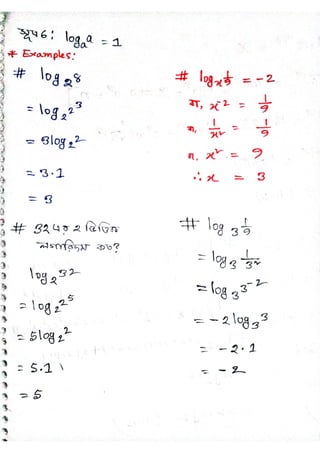 সূত্র ৬: logₐa = 1
# Examples:
# log₂8
= log₂2³
= 3log₂2
= 3·1
= 3
# logₓ 1/9 = -2
বা, x⁻² = 1/9
বা, 1/x² = 1/9
বা, x² = 9
∴ x = 3
# 32 এর 2 ভিত্তিক
লগারিদম কত?
log₂32
= log₂2⁵
= 5log₂2
= 5.1
= 5
# log₃ 1/9
= log₃ 1/3²
= log₃3⁻²
= -2log₃3
= -2·1
= -2